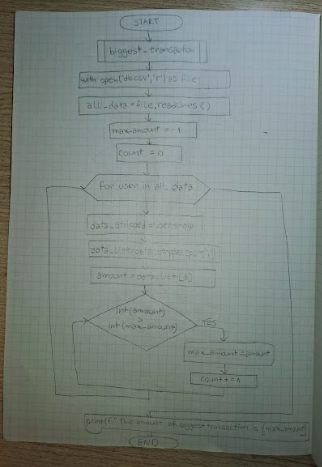 START
biggest_transaction
with open('db.csv','r') as file:
all_data = file.readlines()
max_amount = -1
count = 0
for user in all_data
data_stripped = user.strip
amount = data_list
int(amount)
>
int(max_amount)
YES
max_amount = amount
count += 1
print(f" The amount of biggest transaction is {max_amount}
END